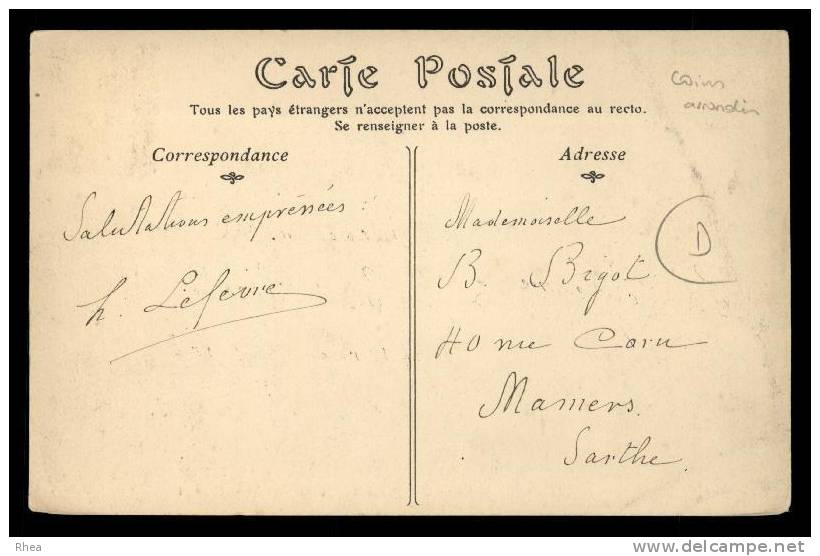 Carte Postale
coins
arrondis
Tous les pays étrangers n'acceptent pas la correspondance au recto.
Se renseigner à la poste.
Correspondance
Salutations empressées
h. Lefevre
Adresse
Mademoiselle
B. Bigot
40 rue
Mamers.
Sarthe
D
Rhea
www.delcampe.net